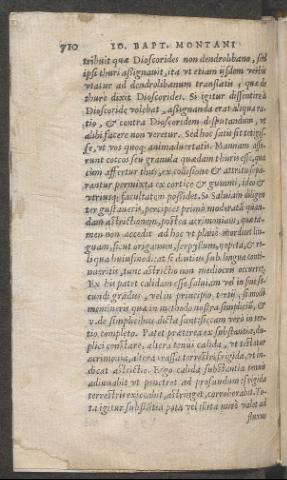 710 IO. BAPT. MONTANI
tribuit quæ Dioscorides non dendrolibano, sed
ipsi thuri assignauit, ita vt etiam ijsdem verbis
vtatur ad dendrolibanum translatis, quæ de
thure dixit Dioscorides. Si igitur dissentire à
Dioscoride volebat, assignanda erat aliqua ra-
tio, & contra Dioscoridem disputandum, vt
alibi facere non veretur. Sed hoc satis sit tetigis-
se, vt vos quoq; animaduertatis. Mannam asse-
runt coccos seu granula quædam thuris esse, quæ
cùm affertur thus, ex collisione & attritu sepa-
rantur permixta ex cortice & gummi, ideo &
vtriusq; facultatem possidet. Si Saluiam diligen
ter gustaueris, percipies primò moderatã quan-
dam astrictionem, postea acrimoniam, quæ ta-
men non accedit ad hoc vt planè mordeat lin-
guam, sicut origanum, serpyllum, nepeta, & re-
liqua huiusmodi: at si diutius sub lingua conti-
nueritis, tunc astrictio non mediocris occurret.
Ex his patet calidam esse saluiam vel in fine se-
cundi gradus, vel in principio tertij, si modò
memineris quæ in methodo nostra simplicis, &
v. de simplicibus dicta sunt: siccam verò in ter-
tio completo. Patet præterea ex substantia, du-
plici constare, altera tenui calida, vt testatur
acrimonia, altera crassa terrestri frigida, vt in-
dicat astrictio. Ergo calida substantia tenuis
adiuuabit vt penetret ad profundum: frigida
terrestris exiccabit, astringet, corroborabit. to-
ta igitur substãtia pota vel illita mirè valet ad
fluxus